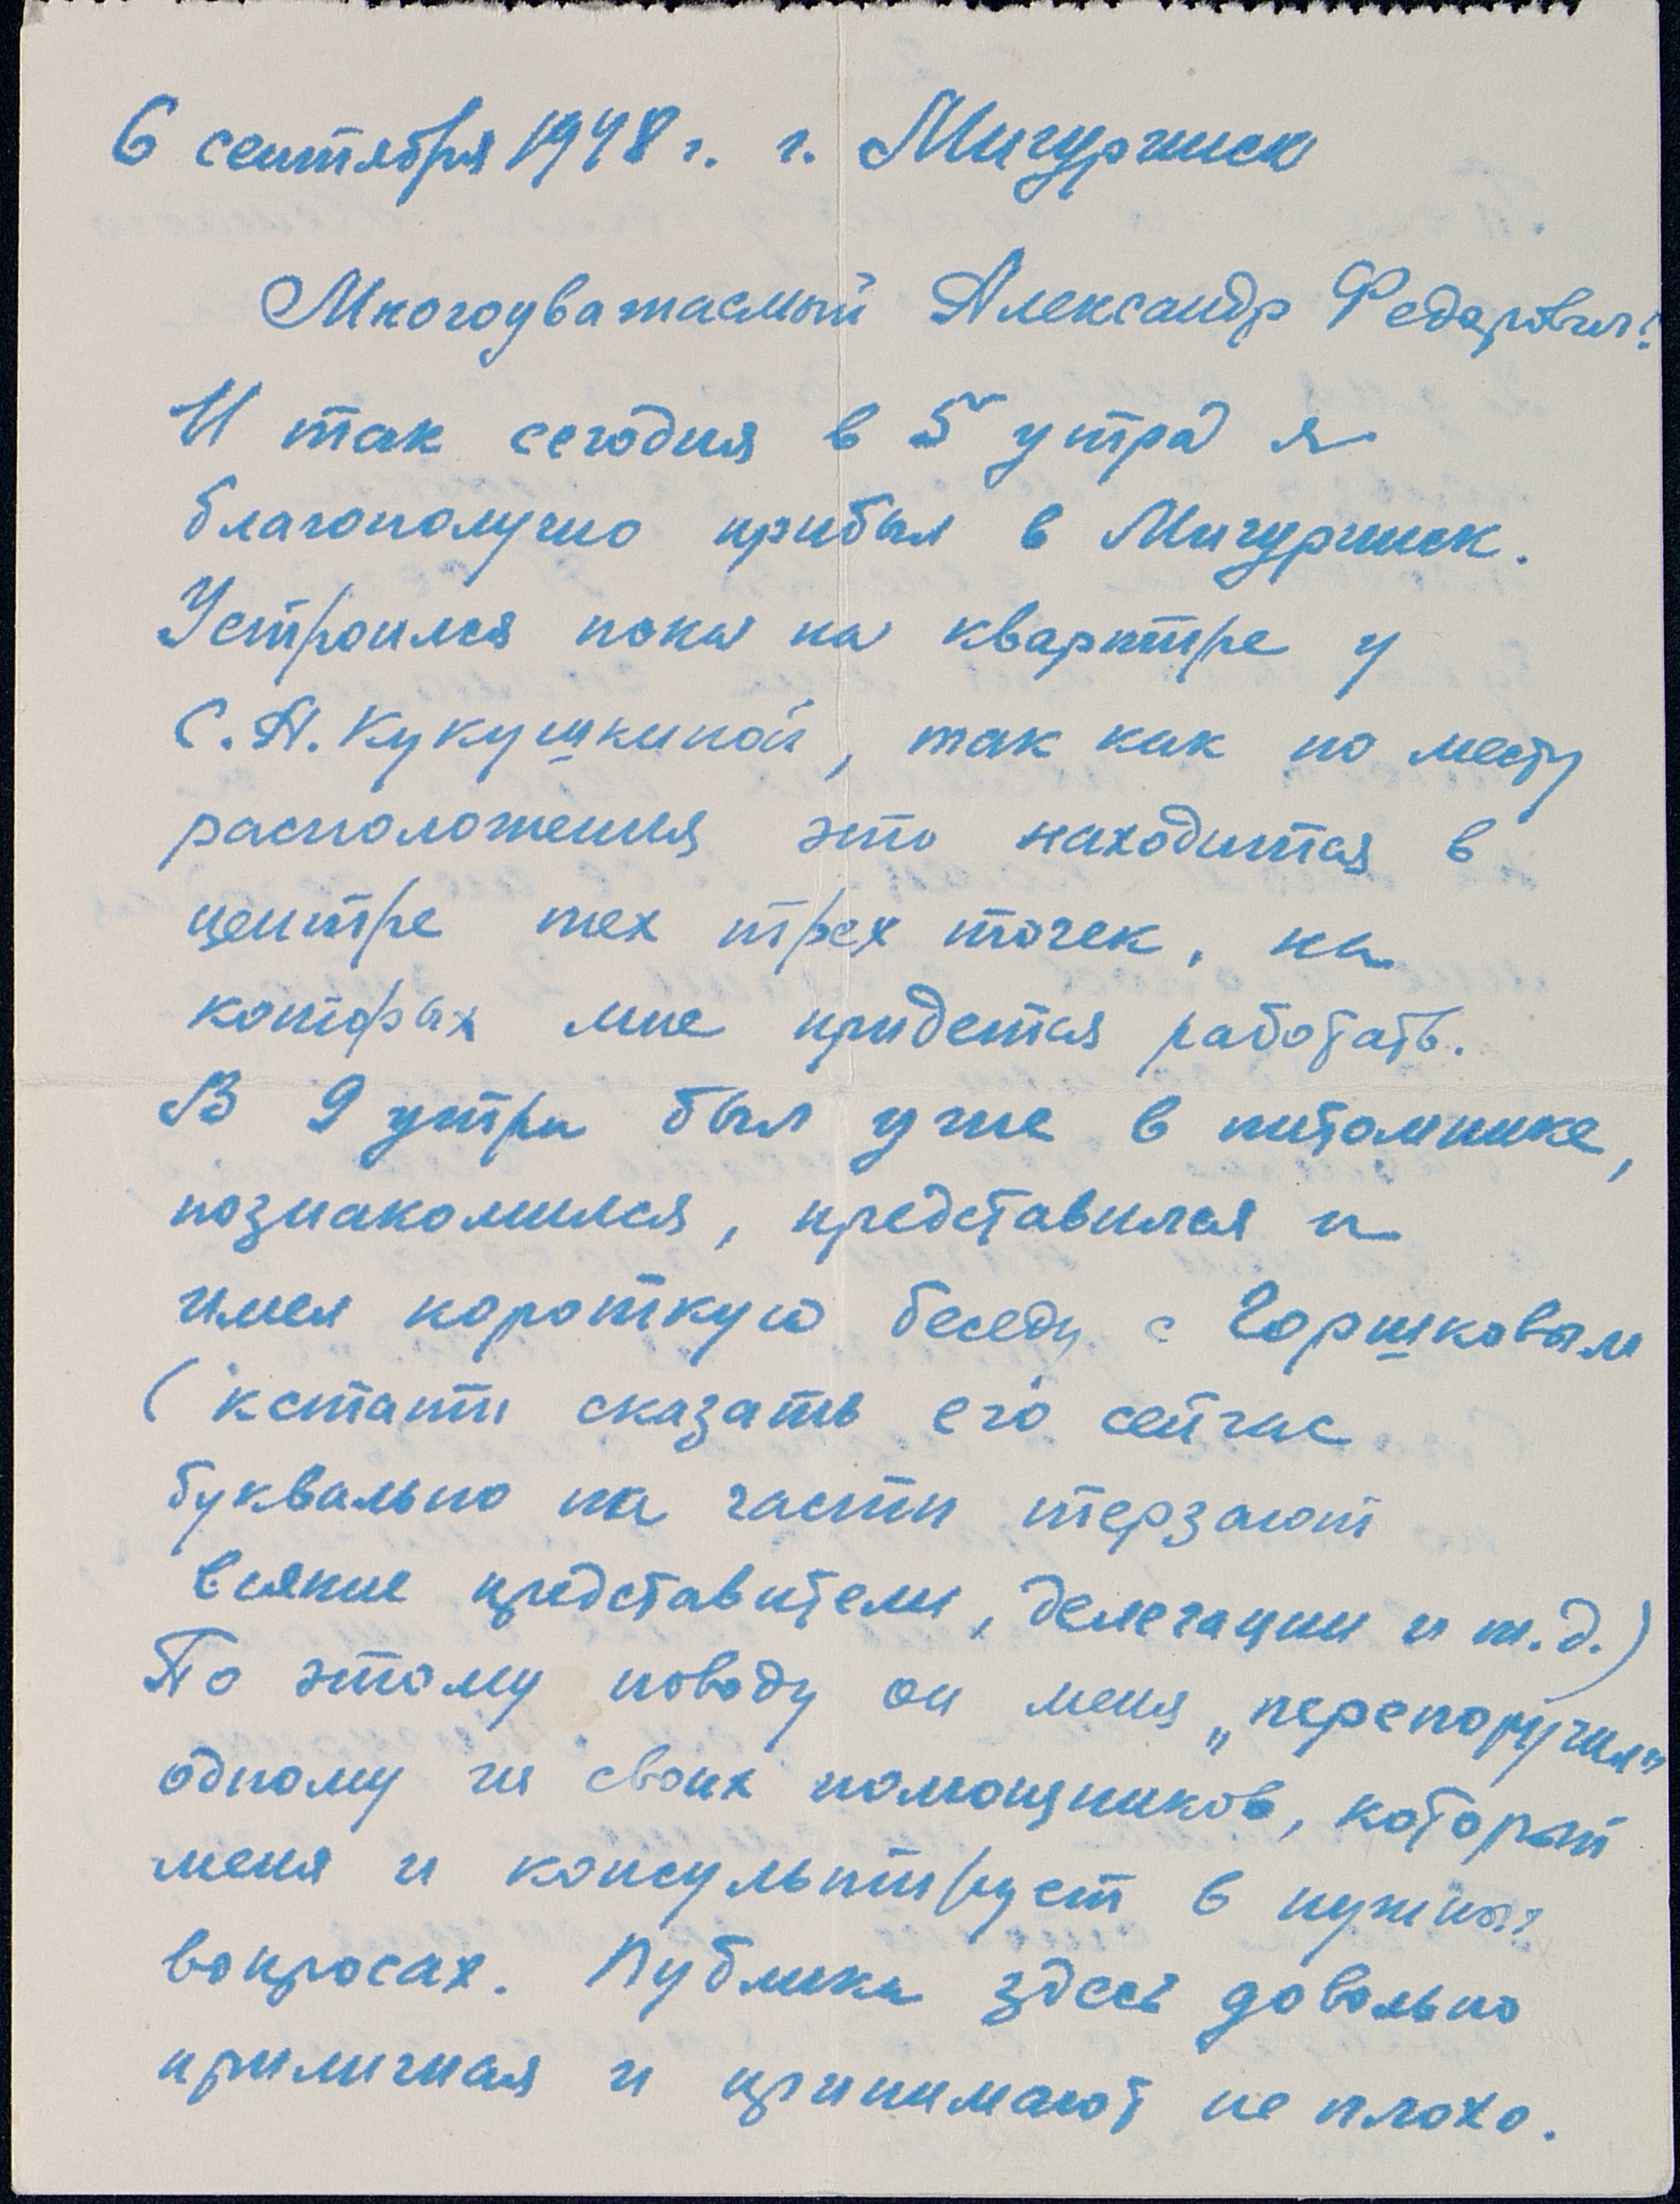 6 сентября 1948 г. г. Мичуринск
Многоуважаемый Александр Федорович!
И так сегодня в 5 утра я
благополучно прибыл в Мичуринск.
Устроился пока на квартире у
С.А. Кукушкиной, так как по месту
расположения это находится в
центре тех трех точек, на
которых мне придется работать.
В 9 утра был уже в питомнике,
познакомился, представился и
имел короткую беседу с Горшковым
(кстати сказать его сейчас
буквально на части терзают
всякие представители, делегации и т.д.)
По этому поводу он меня „перепоручил"
одному из своих помощников, который
меня и консультирует в нужных
вопросах. Публика здесь довольно
приличная и принимают не плохо.